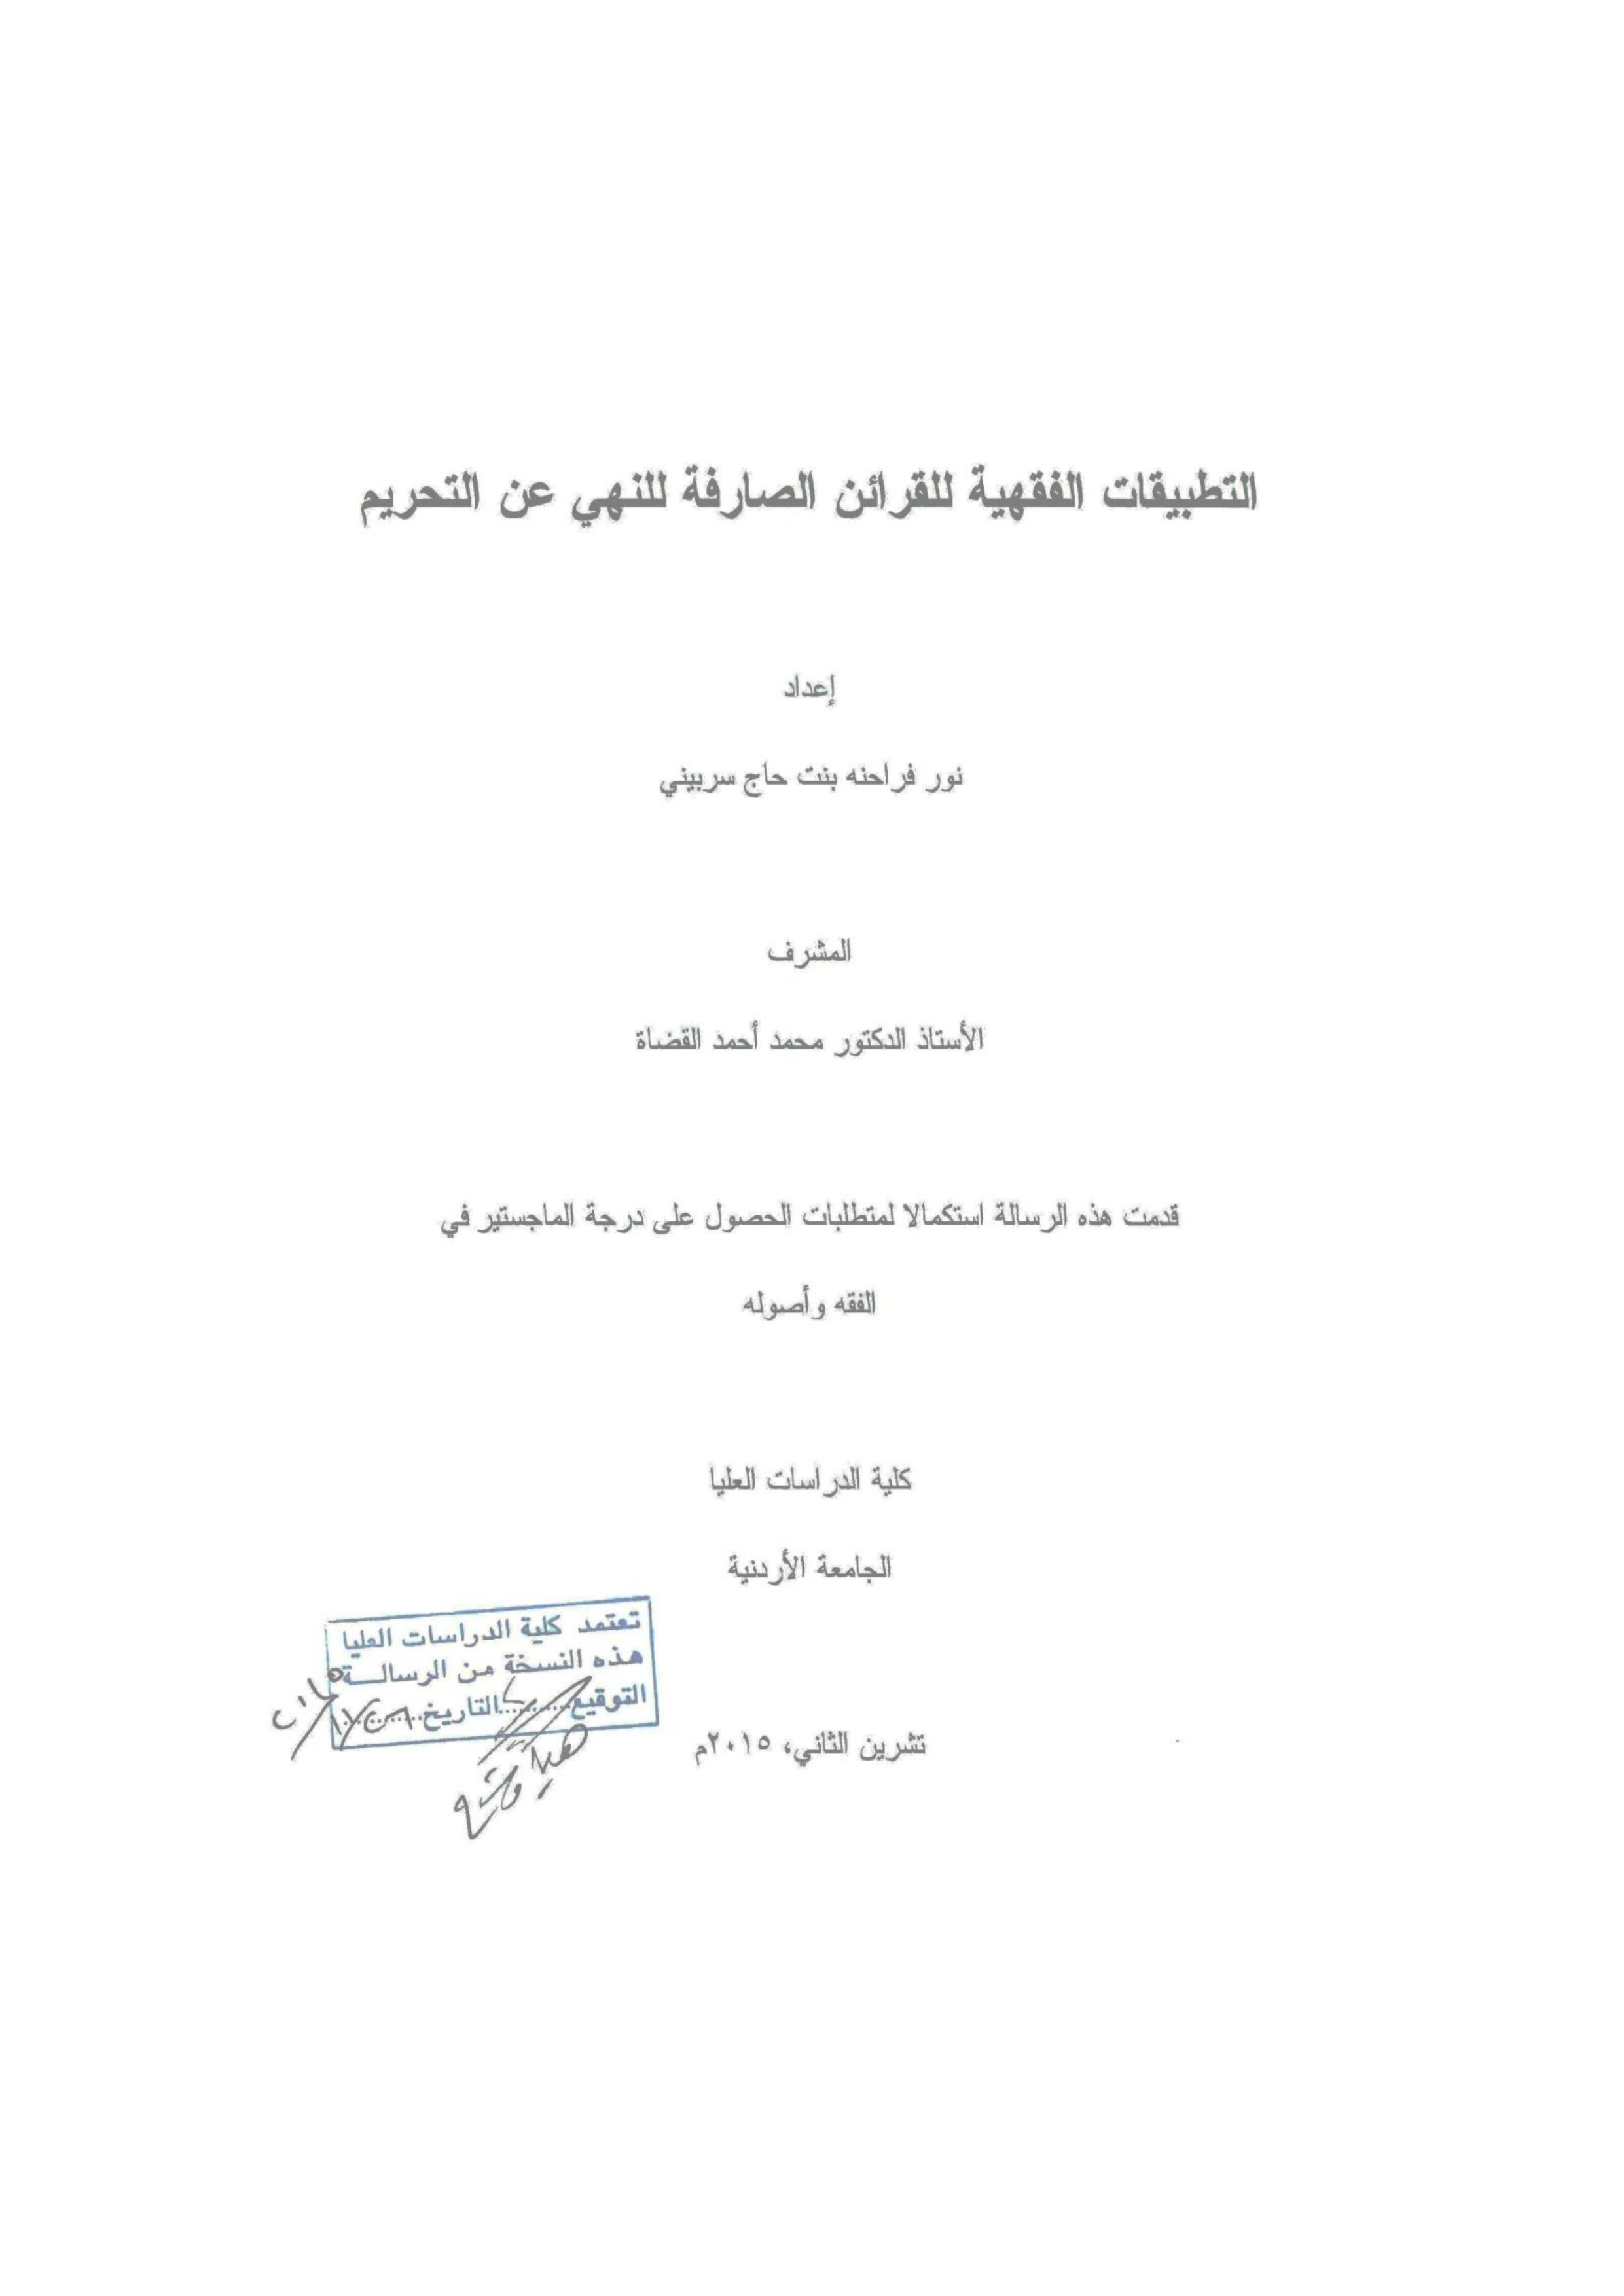 التطبيقات الفقهية للقرائن الصارفة للنهي عن التحريم
إعداد
نور فراحنه بنت حاج سربيني
المشرف
الأستاذ الدكتور محمد أحمد القضاة
قدمت هذه الرسالة استكمالا لمتطلبات الحصول على درجة الماجستير في
الفقه وأصوله
كلية الدراسات العليا
الجامعة الأردنية
تعتمد كلية الدراسات العليا
هذه النسخة من الرسالــة
التوقيع..........التاريخ..........
تشرين الثاني، ٢٠١٥م